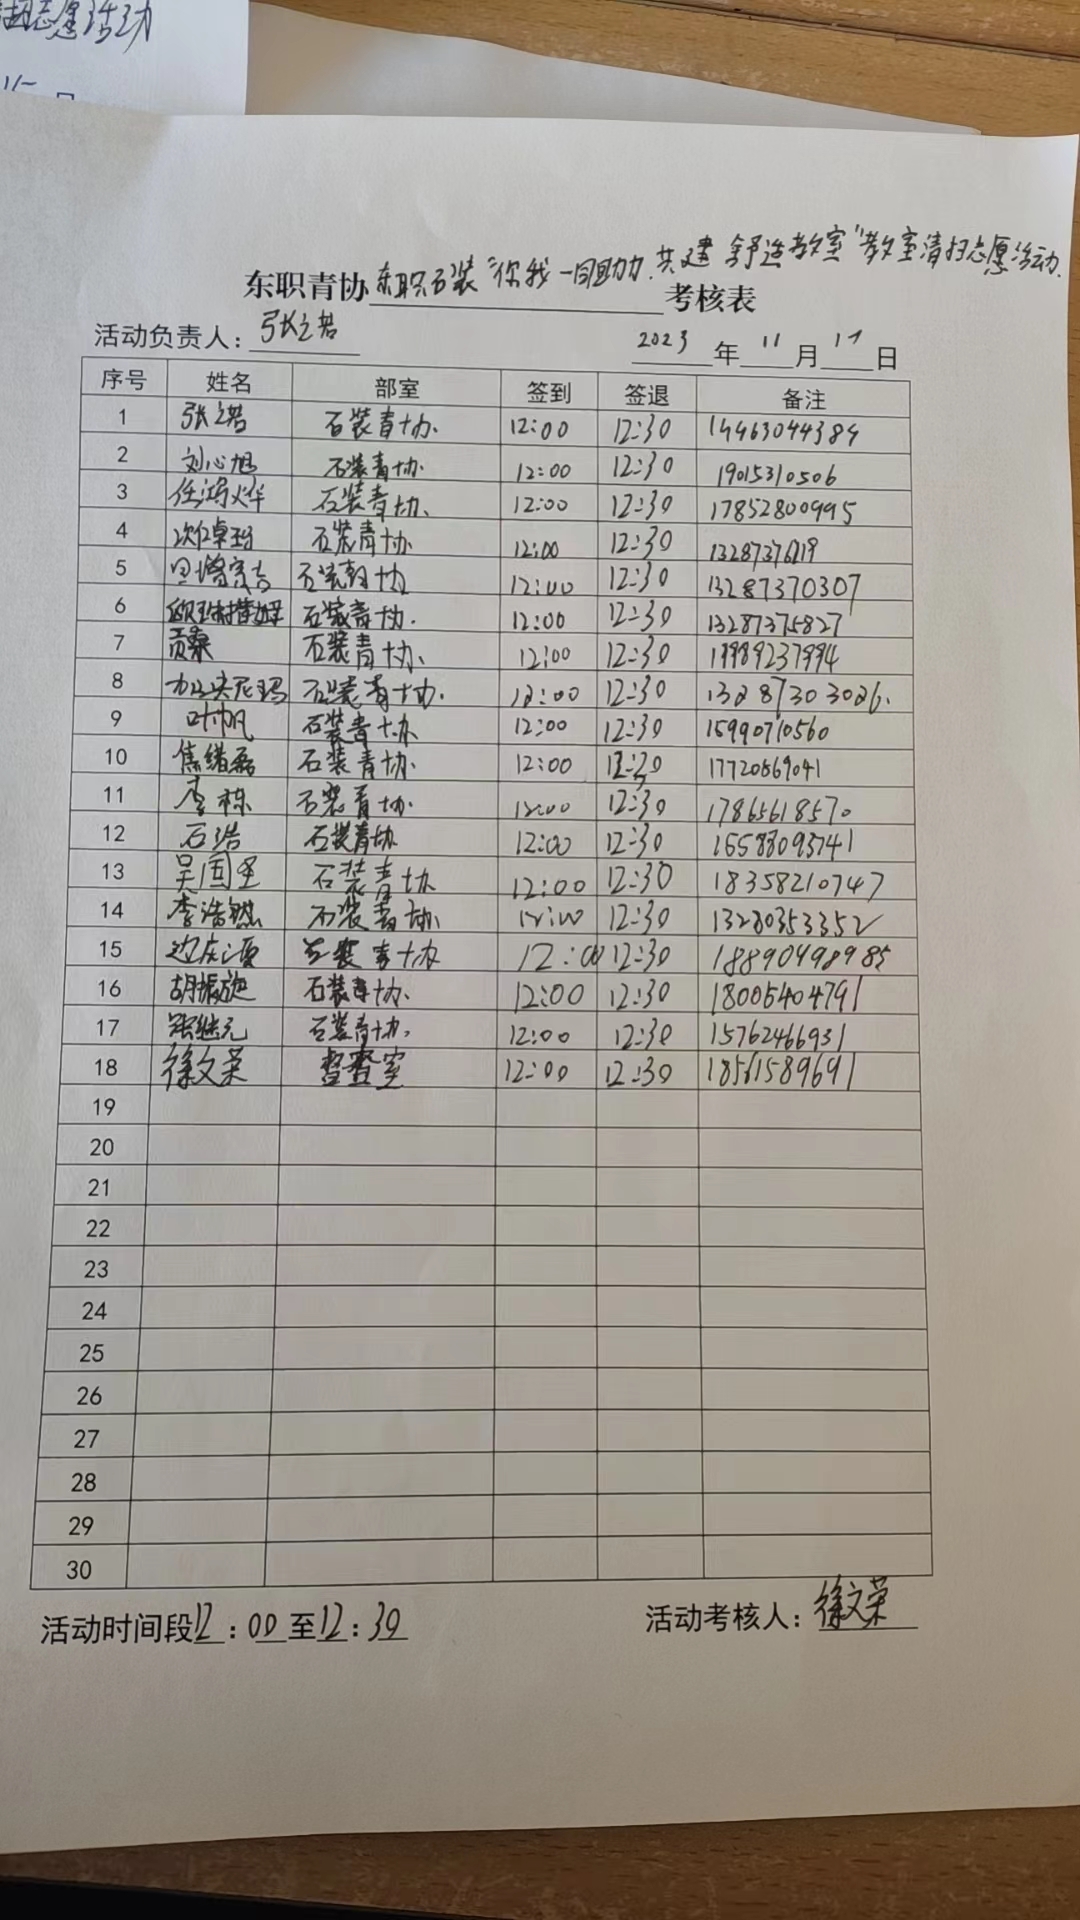 志愿活动
东职青协东职石装“你我一同助力，共建舒适教室”教室清扫志愿活动.考核表
活动负责人：张之若 2023年11月17日
序号 姓名 部室 签到 签退 备注
1 张之若 石装青协. 12:00 12:30 14463044384
2 刘心旭 石装青协. 12:00 12:30 19015310506
3 任鸿烨 石装青协. 12:00 12:30 17852800995
4 次仁卓玛 石装青协 12:00 12:30
5 石装青协 12:00 12:30 13287370307
6 石装青协. 12:00 12:30 13287375827
7 贡桑 石装青协. 12:00 12:30 19989237994
8 加央尼玛 石装青协. 12:00 12:30 13287303026.
9 叶帆 石装青协. 12:00 12:30 15990710560
10 焦绪磊 石装青协. 12:00 12:30 17720869041
11 李栋 石装青协. 12:00 12:30 17865618570
12 石浩 石装青协 12:00 12:30 15588093741
13 吴国圣 石装青协 12:00 12:30 18358210747
14 李浩然 石装青协. 12:00 12:30 13280353352
15 石装青协 12:00 12:30 18890498985
16 胡振旋 石装青协. 12:00 12:30 18005404791
17 张继元 石装青协. 12:00 12:30 15762466931
18 徐文荣 督查室 12:00 12:30 18561589691
19
20
21
22
23
24
25
26
27
28
29
30
活动时间段12:00至12:30 活动考核人：徐文荣